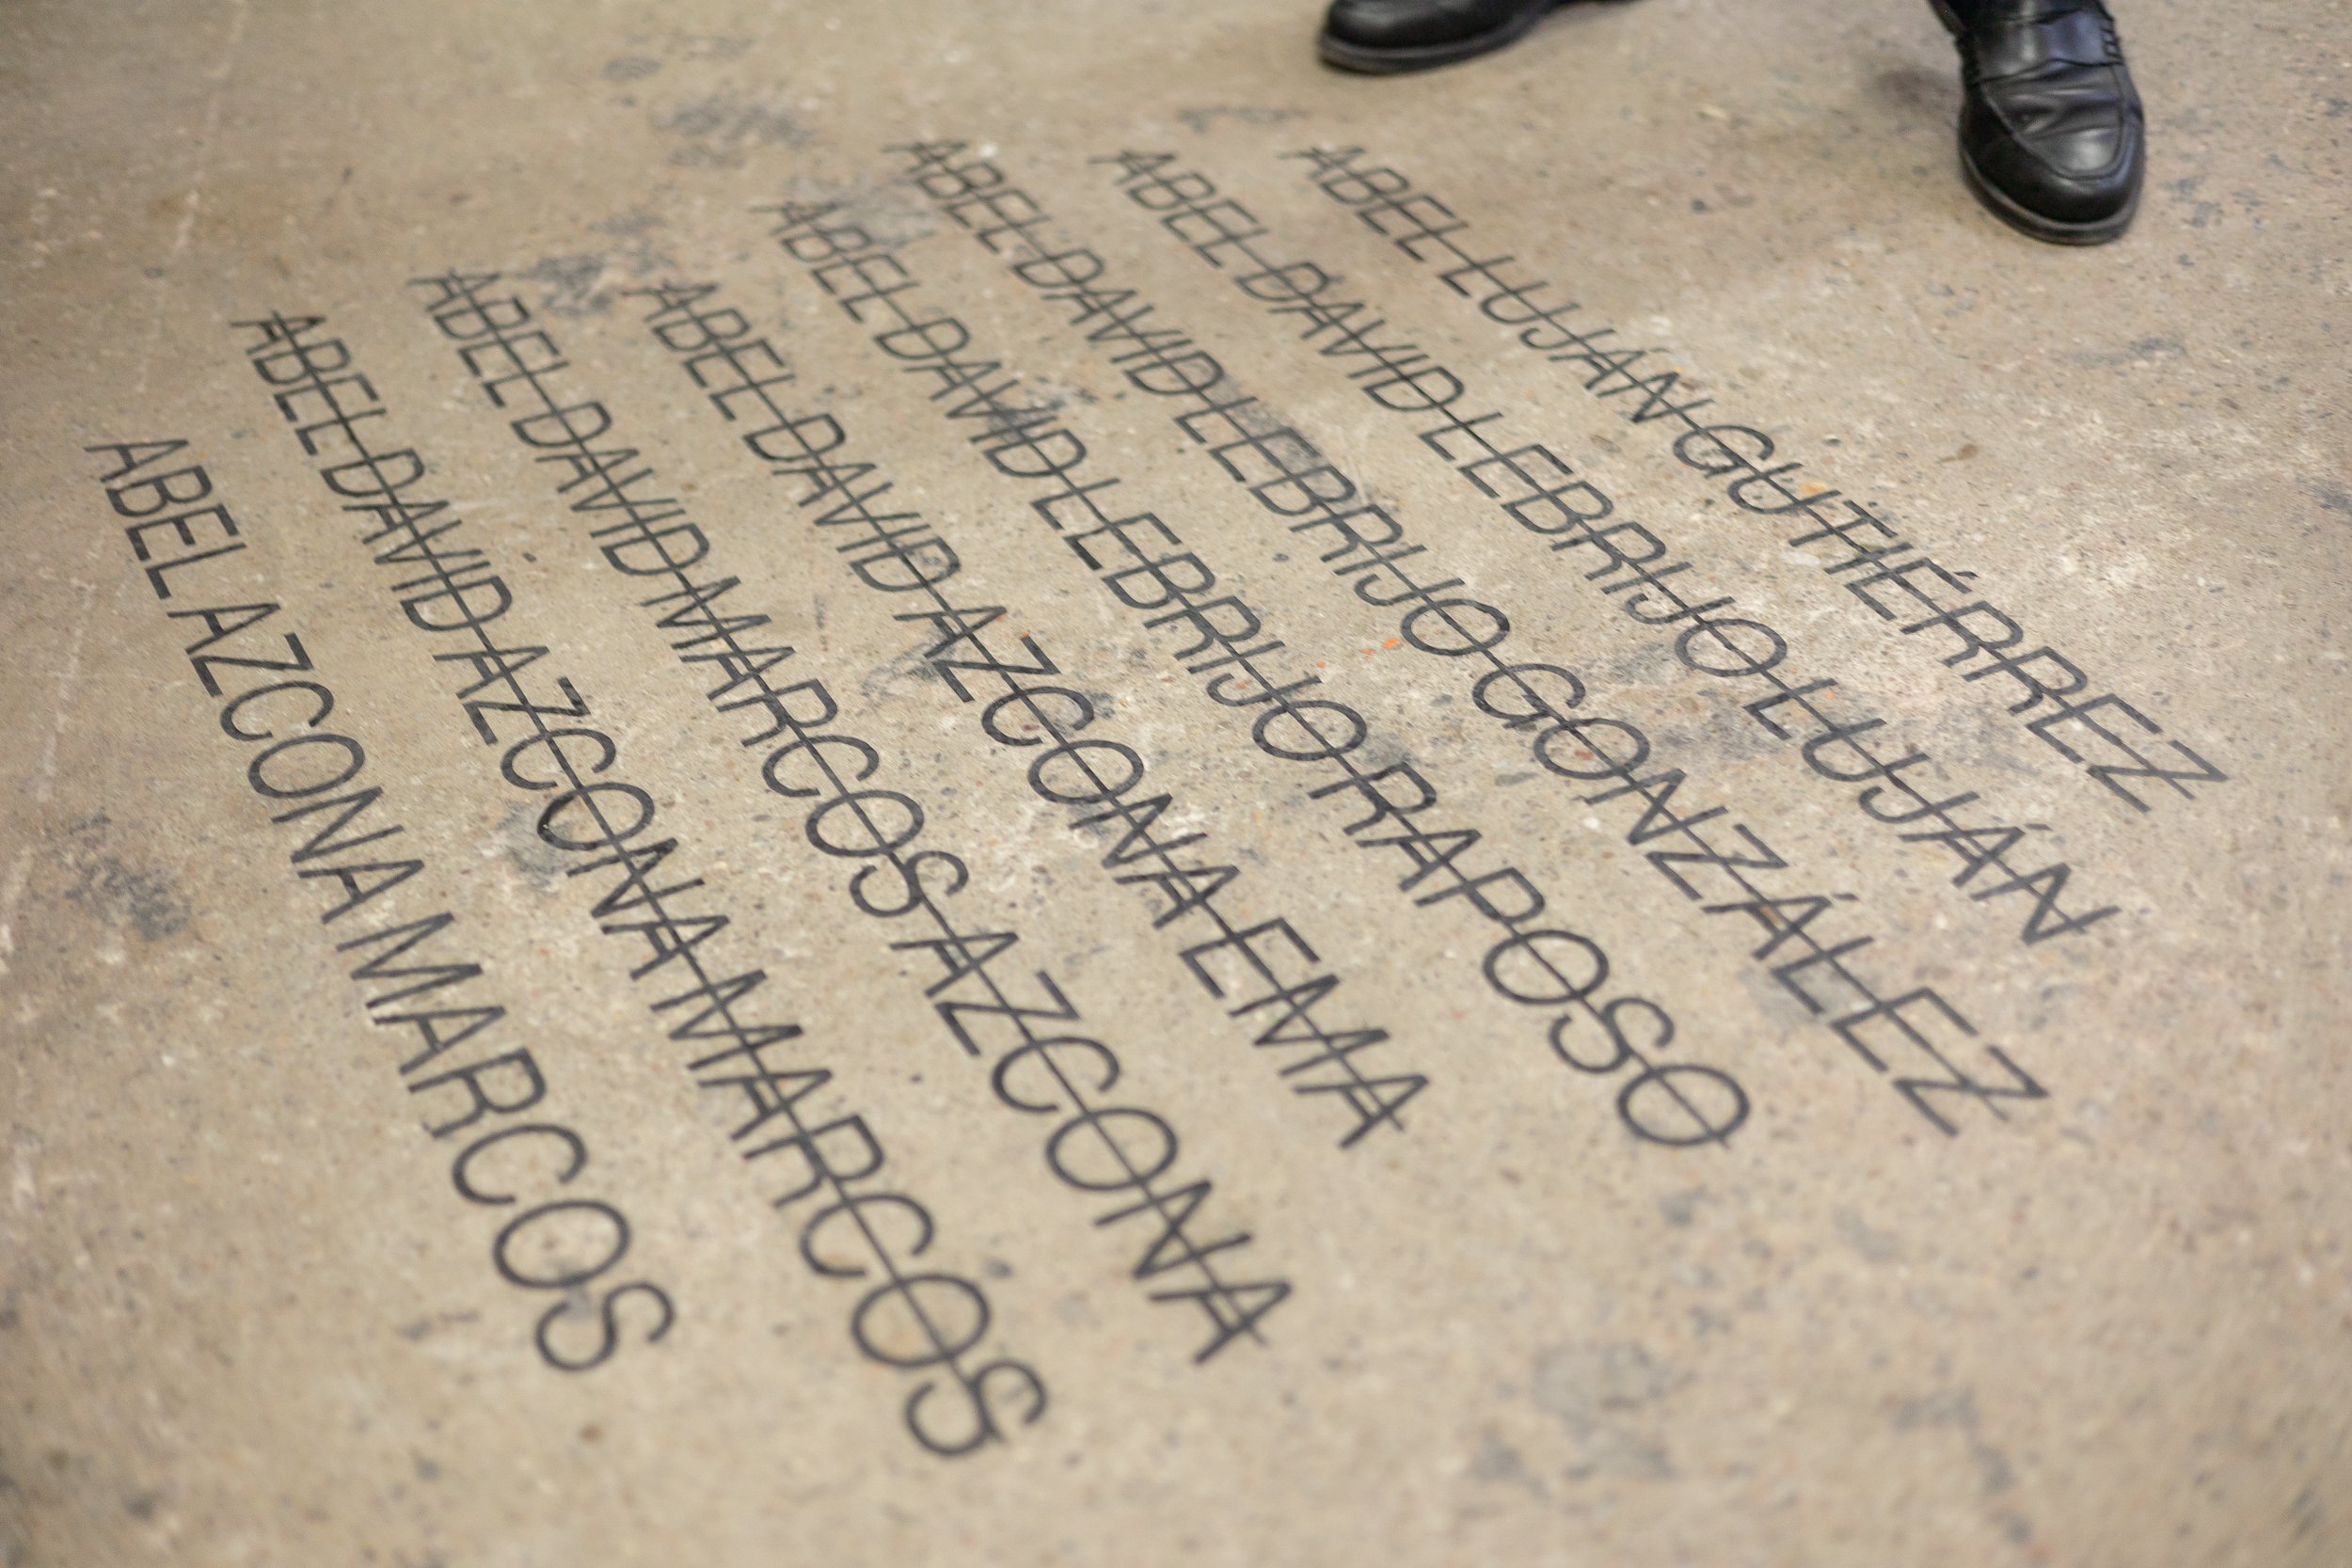 ABEL LUJÁN GUTIÉRREZ
ABEL DAVID LEBRIJO LUJÁN
ABEL DAVID LEBRIJO GONZÁLEZ
ABEL DAVID LEBRIJO RAPOSO
ABEL DAVID AZCONA EMA
ABEL DAVID MARCOS AZCONA
ABEL DAVID AZCONA MARCOS
ABEL AZCONA MARCOS